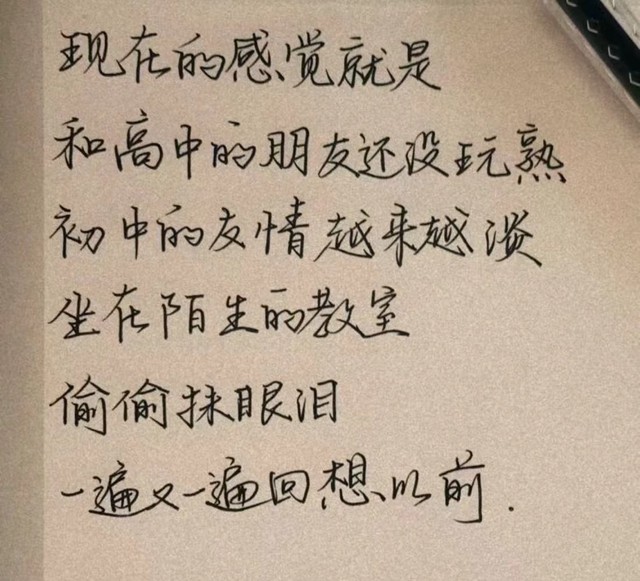 现在的感觉就是
和高中的朋友还没玩熟
初中的友情越来越淡
坐在陌生的教室
偷偷抹眼泪
一遍又一遍回想以前.